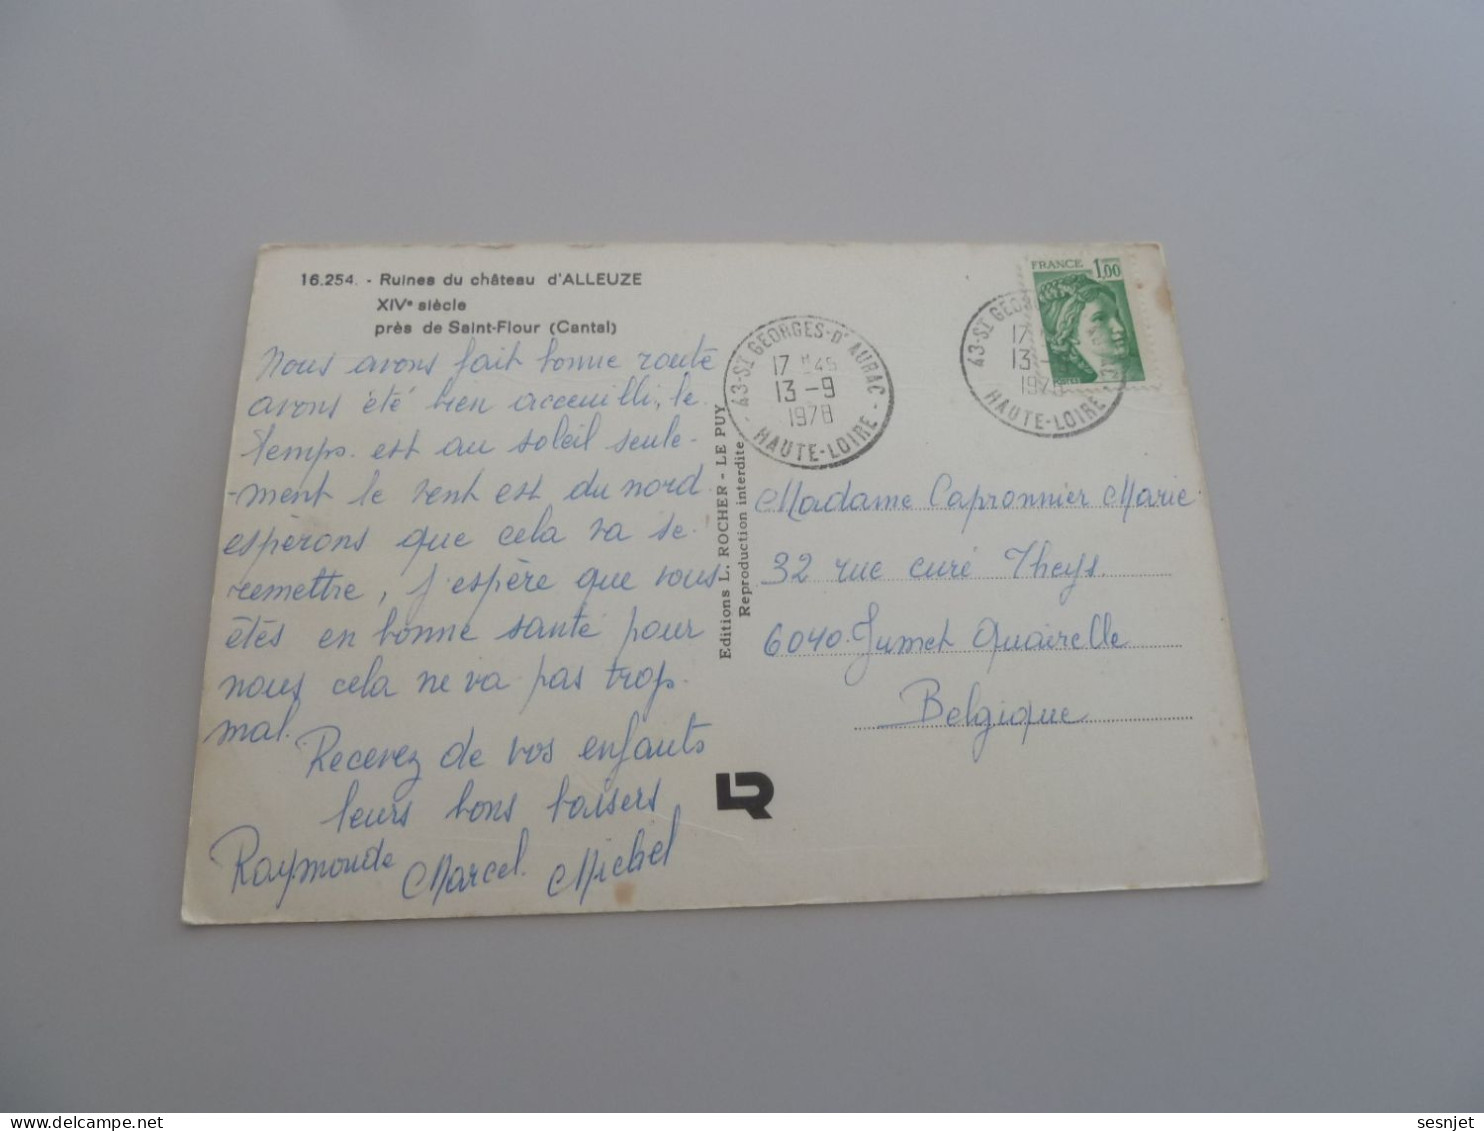 16.254. - Ruines du château d'ALLEUZE
XIVe siècle
près de Saint-Flour (Cantal)
Nous avons fait bonne route
avons été bien acceuilli, le
temps est au soleil seule-
-ment le vent est du nord
esperons que cela va se
remettre, j'espère que vous
êtés en bonne santé pour
nous cela ne va pas trop
mal.
Recevez de vos enfants
leurs bons baisers
Raymonde Marcel Michel
Editions L. ROCHER - LE PUY
Reproduction interdite
43-ST GEORGES-D'AURAC
17 H45
13 -9
1978
HAUTE-LOIRE
FRANCE 1,00
43-ST GEO
17
13-
197
HAUTE-LOIRE
Madame Capronnier Marie
32 rue curé Theys.
6040. Jumet Quairelle
Belgique
LR
sesnjet